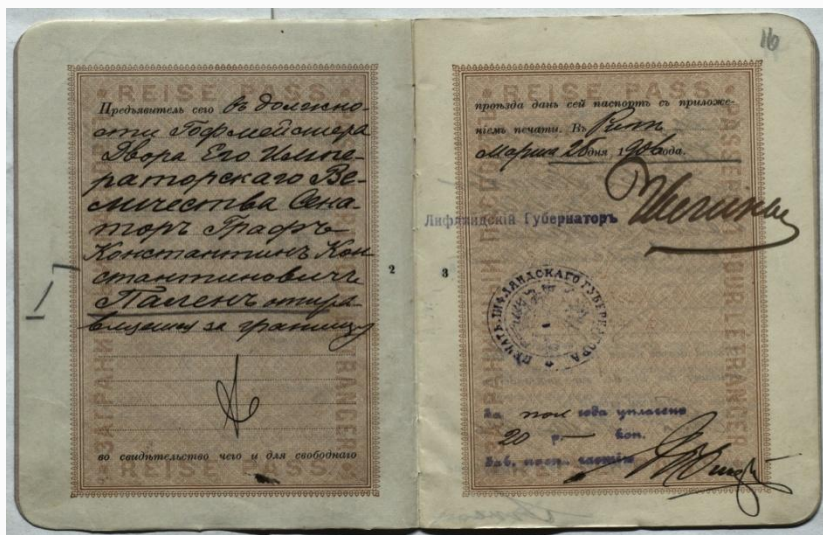 16
REISE PASS
Предъявитель сего въ должно-
сти Гофмейстера
Двора Его Импе-
раторскаго Ве-
личества Сена-
торъ Графъ
Константинъ Кон-
стантиновичъ
Паленъ отпра-
вляется за границу
во свидѣтельство чего и для свободнаго
REISE PASS
2
3
REISE PASS
проѣзда данъ сей паспортъ съ приложе-
ніемъ печати. Въ Ригѣ
Марта 20 дня, 1906 года.
Лифляндскій Губернаторъ
ПЕЧАТЬ ЛИФЛЯНДСКАГО ГУБЕРНАТОРА
За пол года уплачено
20 р. — коп.
Зав. пасп. частію
REISE PASS